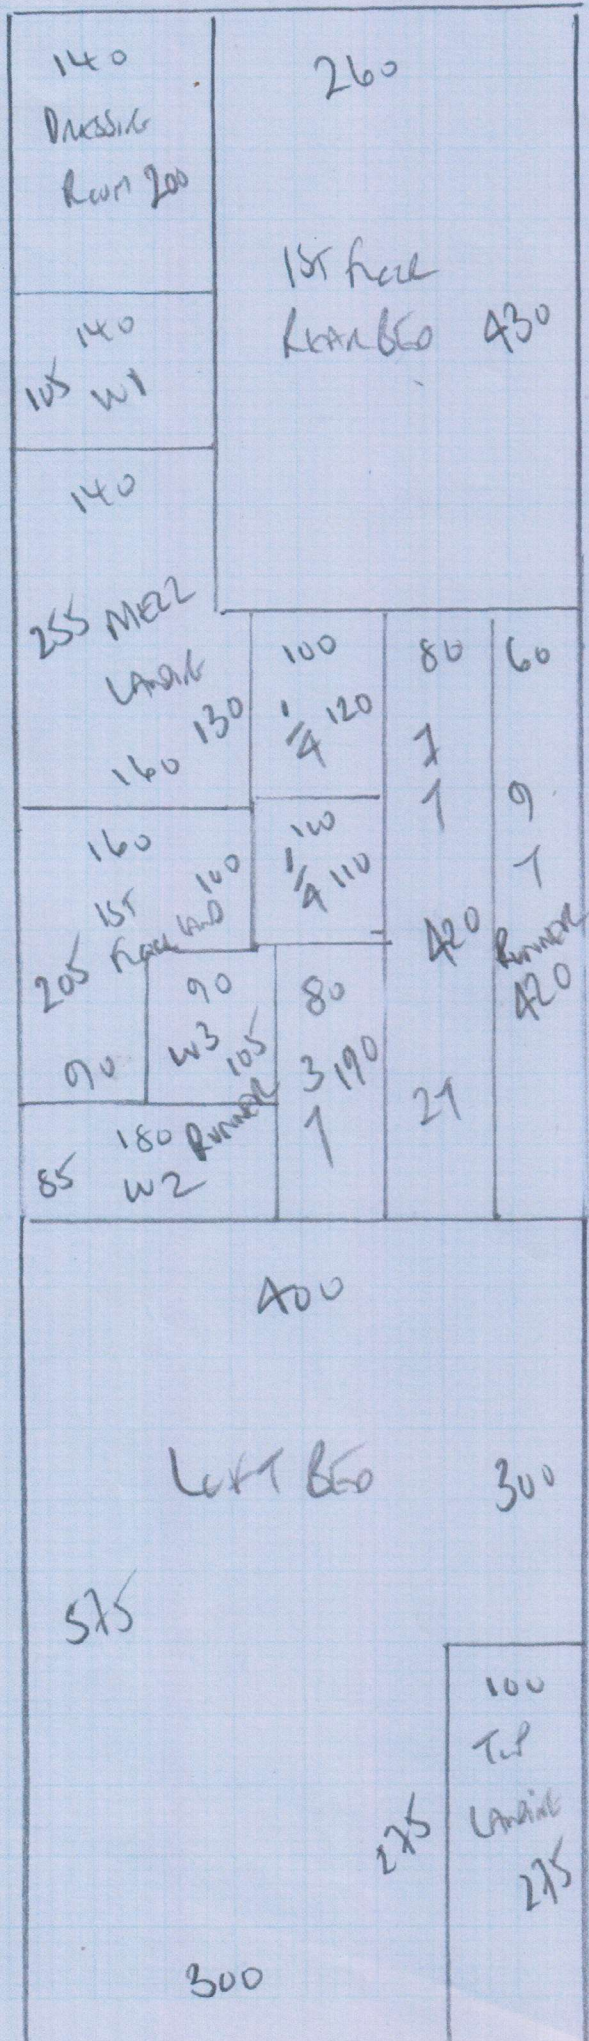 140
DRESSING
ROOM 200
260
1ST FLOOR
REAR BED 430
140
105 W1
140
255 MEZZ
LANDING
130
160
100
1/4 120
80
7
1
420
21
60
9
1
RUNNER
420
160
1ST 100
FLOOR LAND
205
90
100
1/4 110
90
W3 105
80
3 190
1
180 RUNNER
85 W2
400
LOFT BED 300
575
100
TOP
LANDING
275
275
300